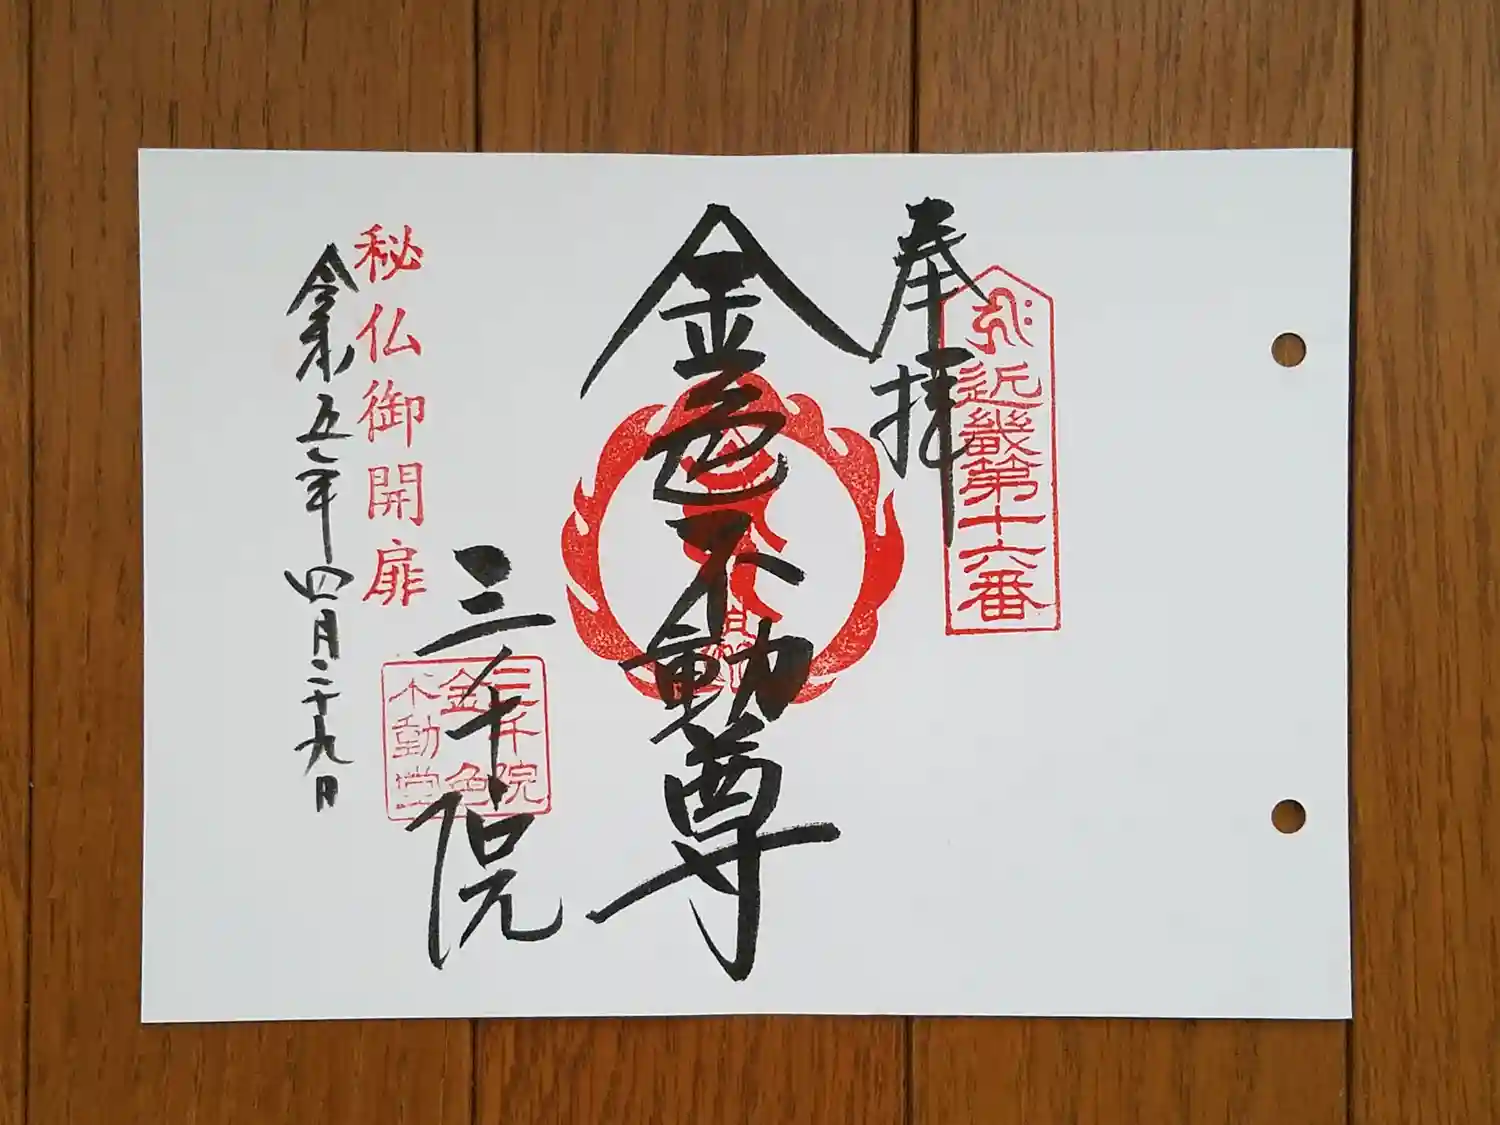 奉拝
近畿第十六番
金色不動尊
三千院
三千院
金色
不動堂
秘仏御開扉
令和五年四月二十九日